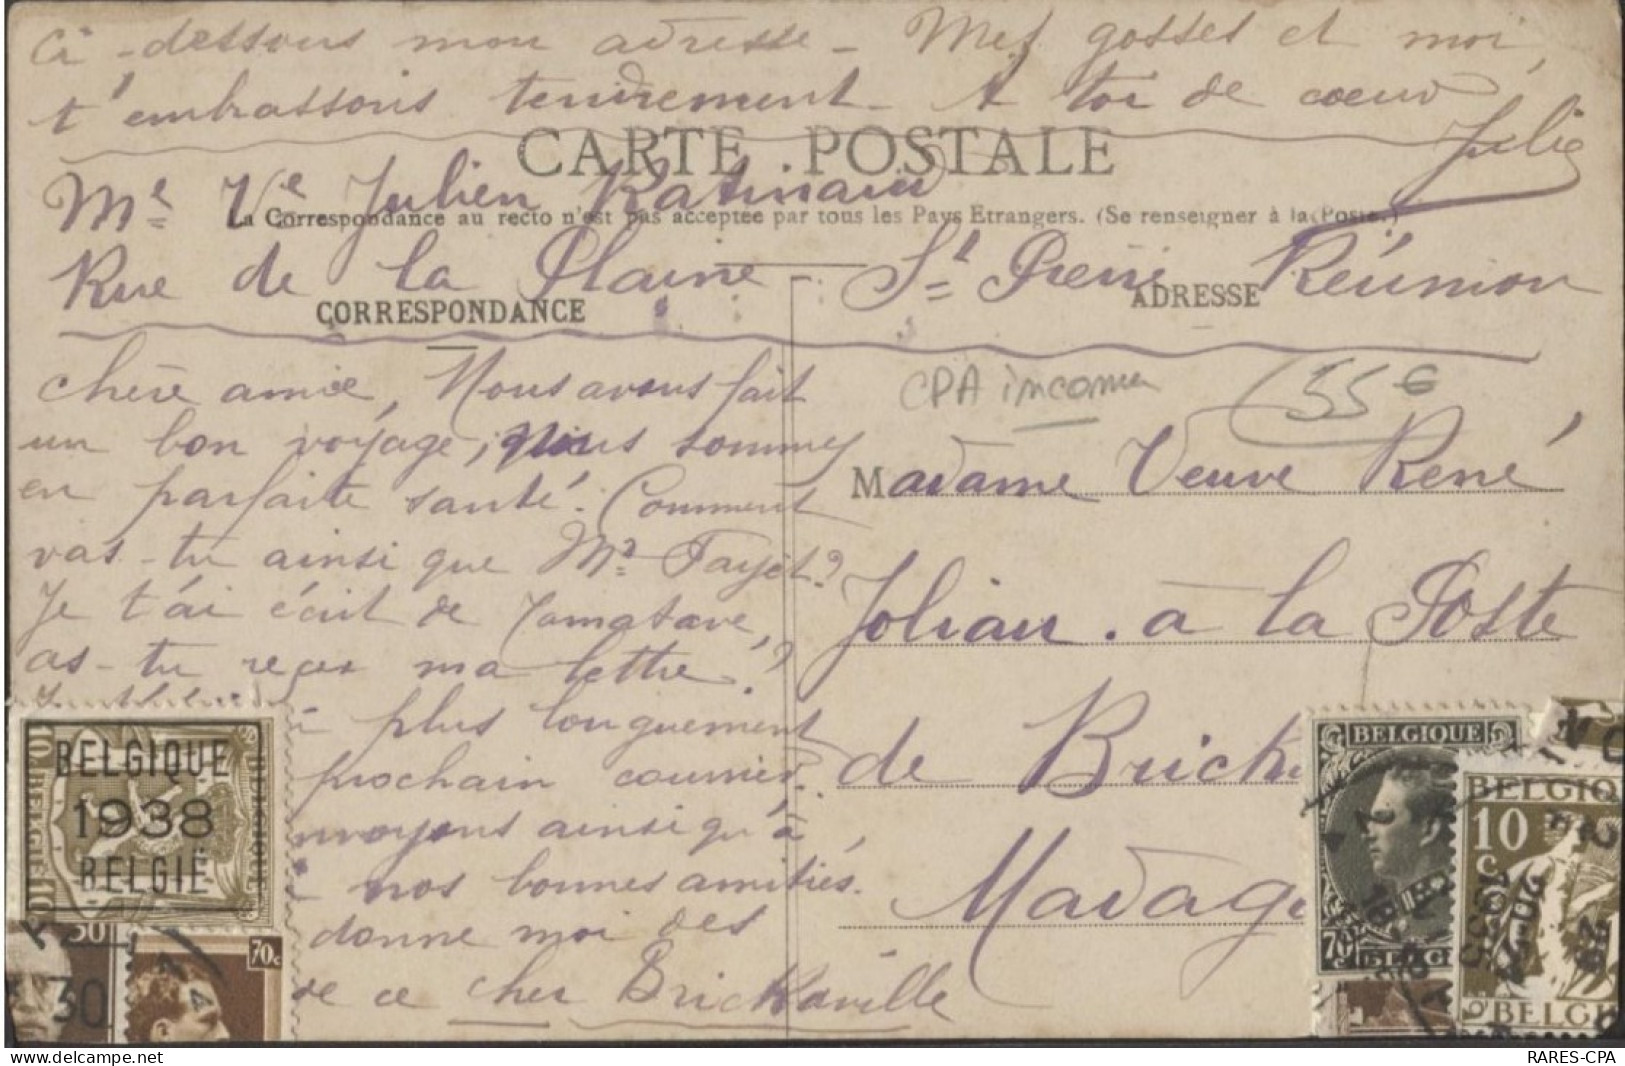 Ci-dessous mon adresse - Mes gosses et moi,
t'embrassons tendrement - A toi de coeur
Julie
CARTE POSTALE
Me Ve Julien
La Correspondance au recto n'est pas acceptée par tous les Pays Etrangers. (Se renseigner à la Poste.)
Rue de la Plaine - St Pierre Réunion
CORRESPONDANCE
ADRESSE
Chère amie, Nous avons fait
un bon voyage, nous sommes
en parfaite santé. Comment
vas-tu ainsi que Mr Fayet?
Je t'ai écrit de Tamatave,
as-tu reçu ma lettre?
à plus longuement
prochain courrier.
envoyons ainsi qu'à
nos bonnes amitiés.
donne moi des
de ce cher Brickaville
CPA inconnu
55€
Madame Veuve René
Jolian. à la Poste
de Bricka
Madaga
BELGIQUE
1938
BELGIË
10
70c
30
BELGIQUE
70c
BELG
BELGIQU
10
c
BELGI
RARES-CPA